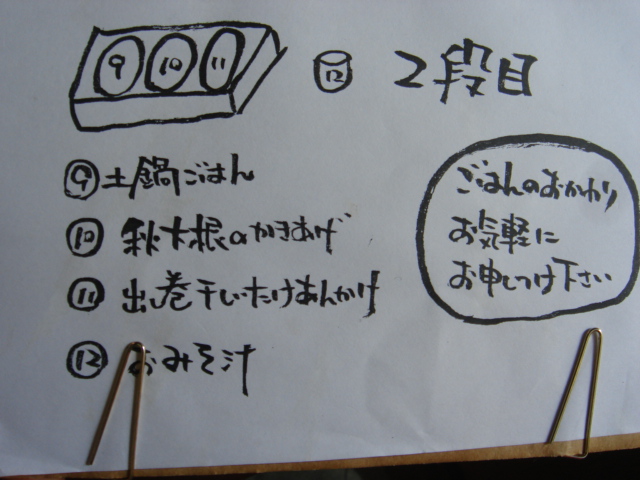 9 10 11 12 2段目
⑨土鍋ごはん
⑩秋大根のかきあげ
⑪出し巻干しいたけあんかけ
⑫おみそ汁
ごはんのおかわり
お気軽に
お申しつけ下さい